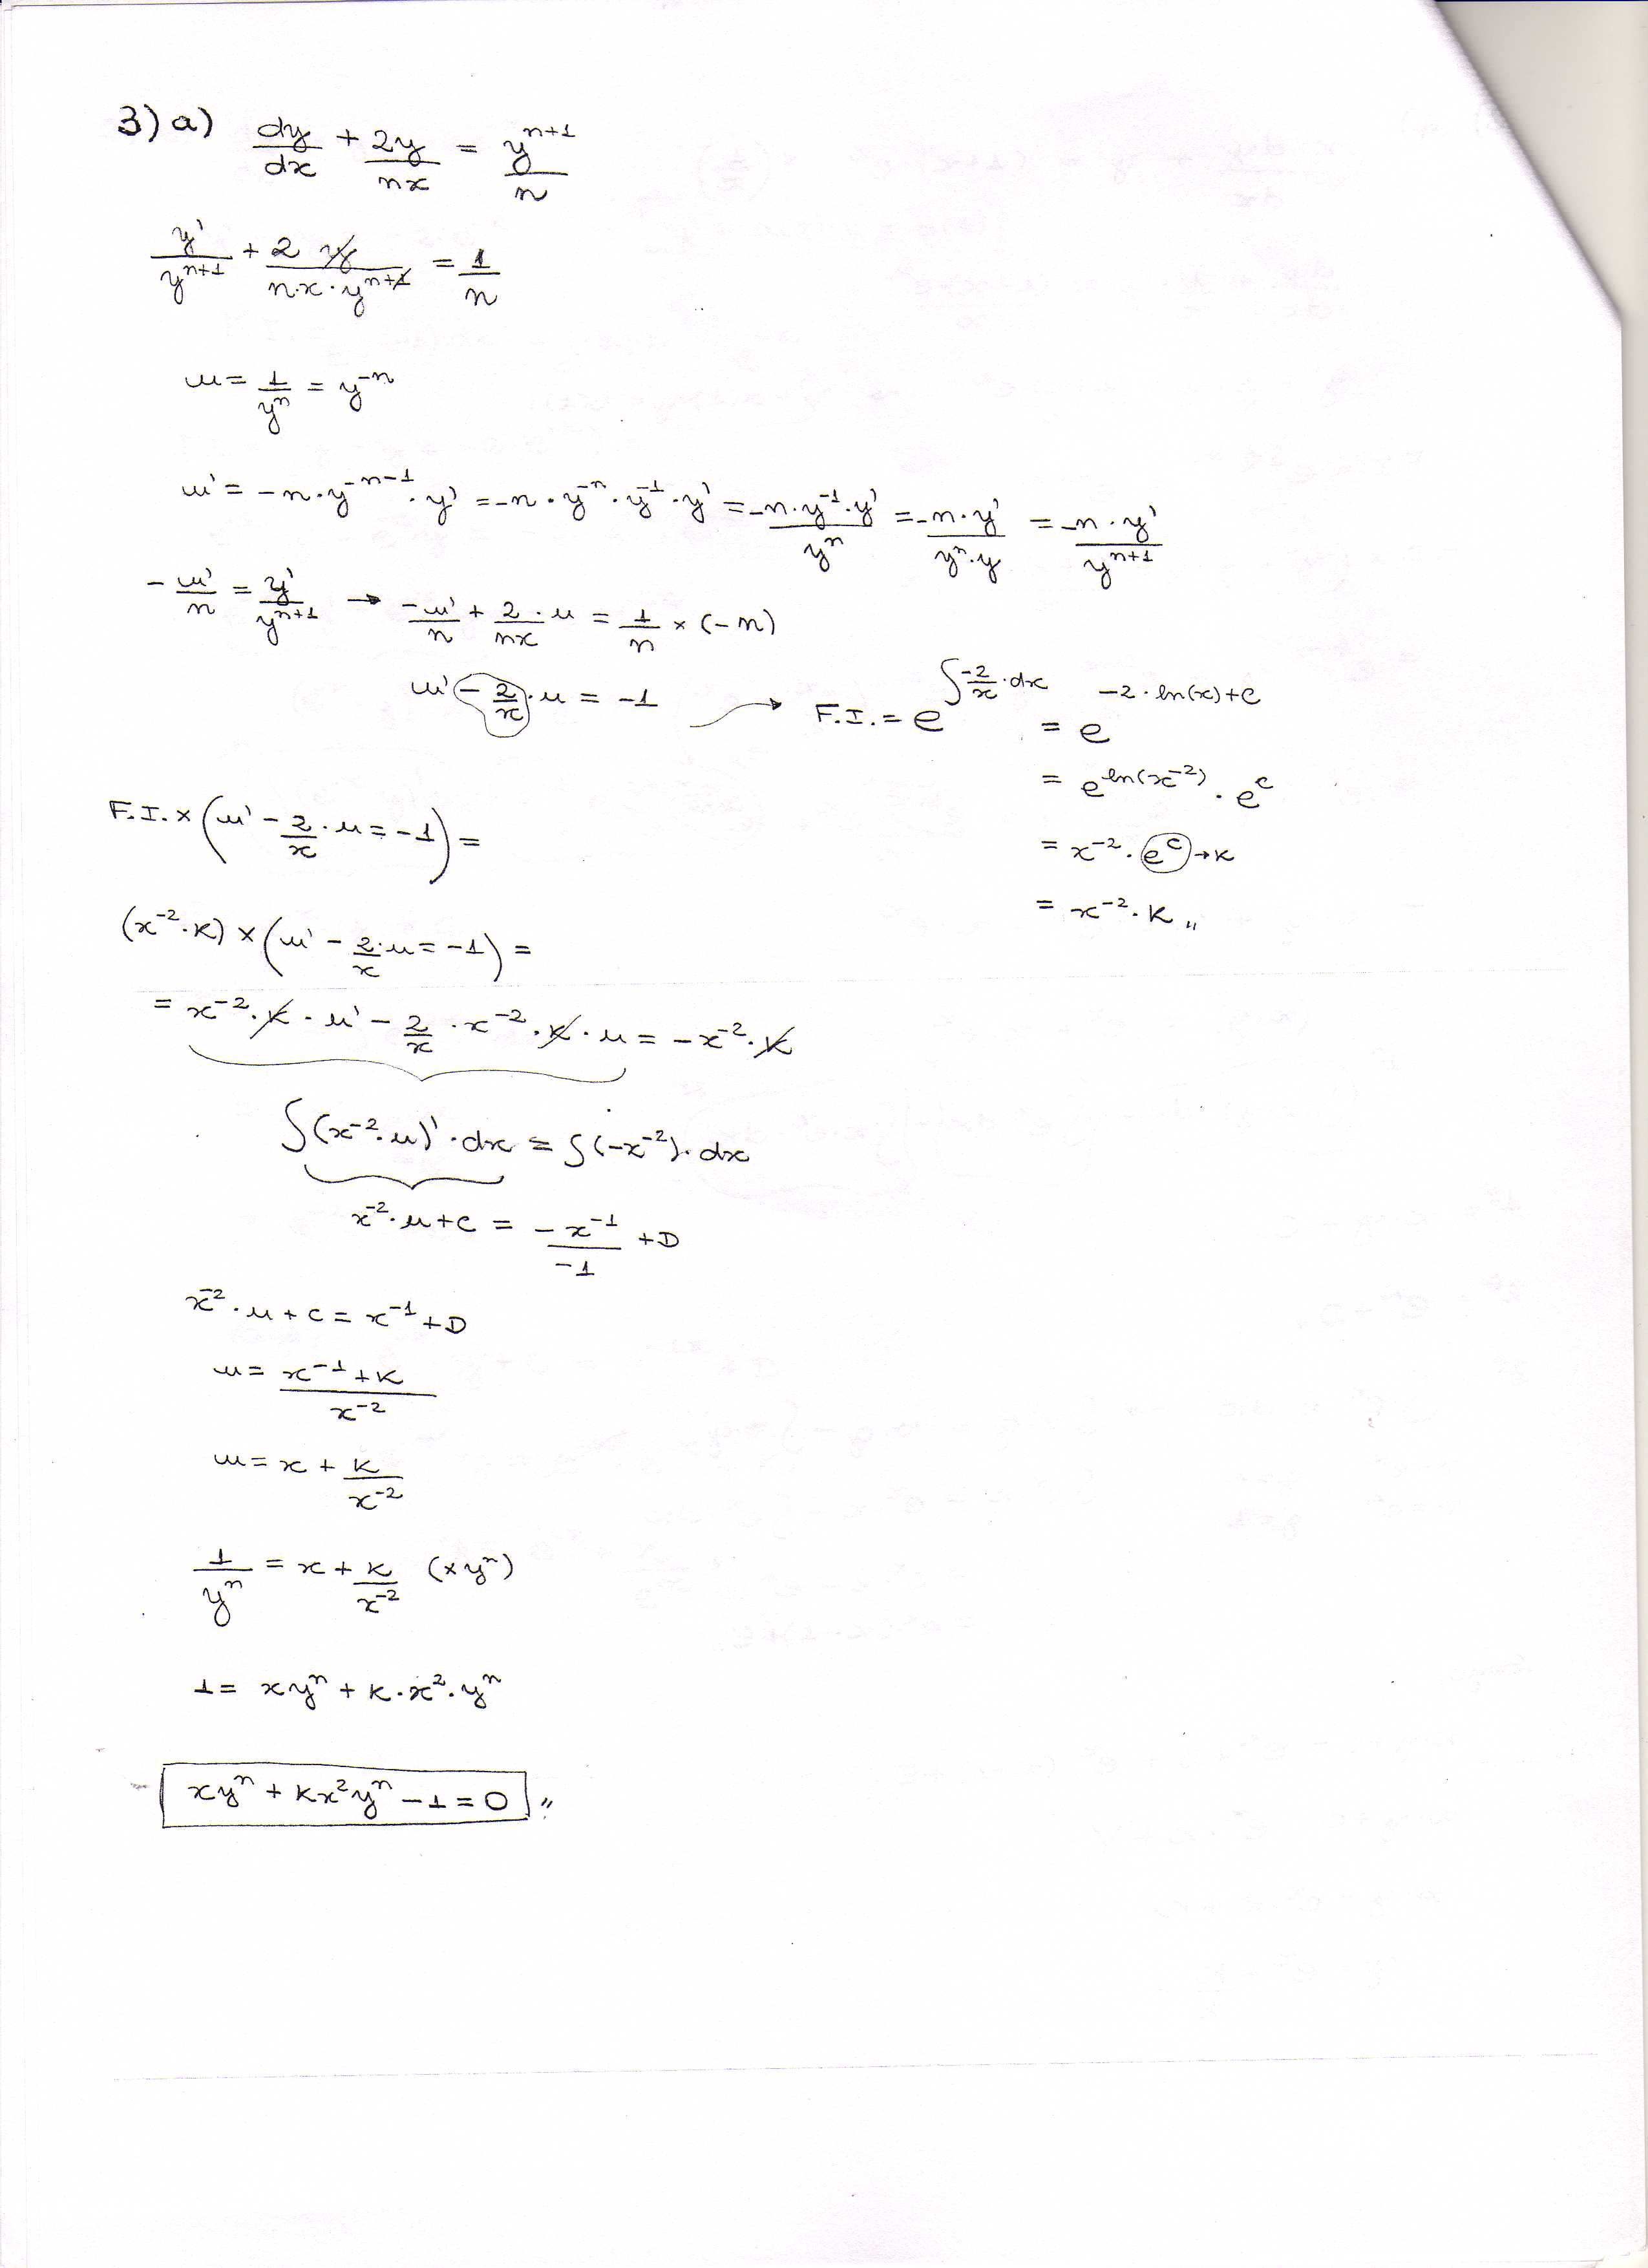 3) a) dy/dx + 2y/nx = y^(n+1)/n
y'/y^(n+1) + 2 y/(n·x·y^(n+1)) = 1/n
u = 1/y^n = y^(-n)
u' = -n·y^(-n-1)·y' = -n·y^(-n)·y^(-1)·y' = -n·y^(-1)·y'/y^n = -n·y'/(y^n·y) = -n·y'/y^(n+1)
-u'/n = y'/y^(n+1) → -u'/n + 2/nx·u = 1/n × (-n)
u' - 2/x·u = -1 → F.I. = e^(∫-2/x·dx) = e^(-2·ln(x)+c)
= e^(ln(x^(-2)))·e^c
F.I. × (u' - 2/x·u = -1) =
= x^(-2)·e^c → K
= x^(-2)·K,,
(x^(-2)·K) × (u' - 2/x·u = -1) =
= x^(-2)·K·u' - 2/x·x^(-2)·K·u = -x^(-2)·K
∫(x^(-2)·u)'·dx = ∫(-x^(-2))·dx
x^(-2)·u + c = -x^(-1)/-1 + D
x^(-2)·u + c = x^(-1) + D
u = (x^(-1) + K)/x^(-2)
u = x + K/x^(-2)
1/y^n = x + K/x^(-2) (×y^n)
1 = xy^n + K·x^2·y^n
xy^n + Kx^2y^n - 1 = 0,,